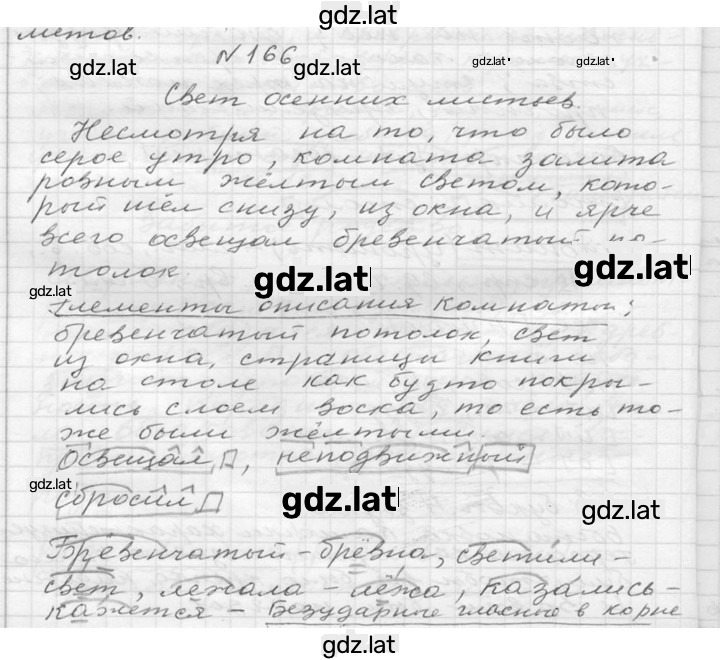 gdz.lat
метов.
№ 166
gdz.lat gdz.lat gdz.lat gdz.lat
Свет осенних листьев.
Несмотря на то, что было
серое утро, комната залита
ровным жёлтым светом, кото-
рый шёл снизу, из окна, и ярче
всего освещал бревенчатый по-
толок.
gdz.lat gdz.lat gdz.lat
Элементы описания комнаты:
бревенчатый потолок, свет
из окна, страницы книги
на столе как будто покры-
лись слоем воска, то есть то-
же были жёлтыми.
Освещал, неподвижный
gdz.lat gdz.lat gdz.lat
сбросил
Бревенчатый - брёвна, светили -
свет, лежала - лёжа, казались -
кажется - Безударные гласные в корне
gdz.lat